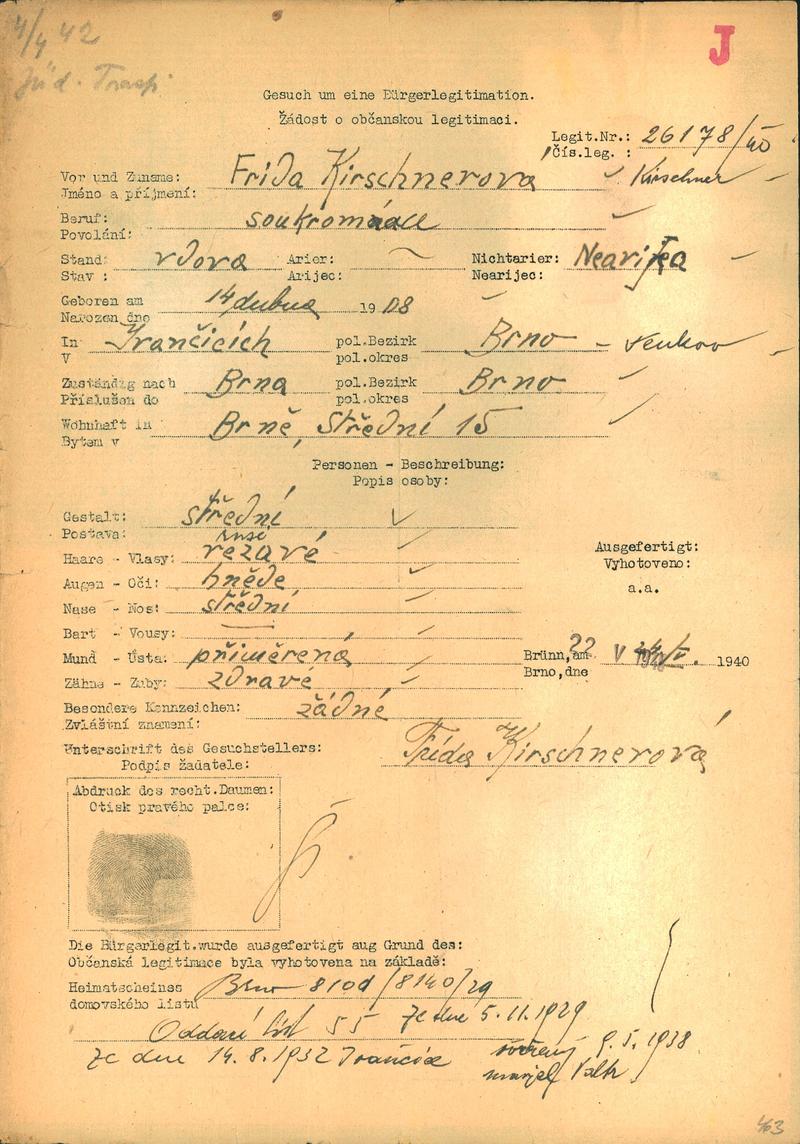 4/4 42
Jüd. Transp.
J
Gesuch um eine Bürgerlegitimation.
Žádost o občanskou legitimaci.
Legit.Nr.: 26178/40
Čís.leg. :
Vor und Zuname: Frida Kirschnerova Kirschner
Jméno a příjmení:
Beruf:
Povolání:
Stand: vdova Arier: Nichtarier: Nearijka
Stav : Arijec: Nearijec:
Geboren am 14 dubna 1908
Narozen dne
In Ivančicích pol.Bezirk Brno - venkov
V pol.okres
Zuständig nach Brna pol.Bezirk Brno
Příslušen do pol.okres
Wohnhaft in Brně, Střední 15
Bytem v
Personen - Beschreibung:
Popis osoby:
Gestalt: střední
Postava:
Haare - Vlasy: rezavé
Augen - Oči: hnědé
Nase - Nos: střední
Bart - Vousy:
Mund - Ústa: přiměřená
Zähne - Zuby: zdravé
Ausgefertigt:
Vyhotoveno:
a.a.
Brünn, am 22 V 1940
Brno, dne
Besondere Kennzeichen: žádné
Zvláštní znamení:
Unterschrift des Gesuchstellers: Frída Kirschnerová
Podpis žadatele:
Abdruck des recht.Daumen:
Otisk pravého palce:
Die Bürgerlegit.wurde ausgefertigt aug Grund des:
Občanská legitimace byla vyhotovena na základě:
Heimatscheines Brno 8101/8140/29
domovského listu ze dne 5.11.1929
Oddací list 55
ze dne 14.8.1932 Ivančice 9.5.1938
463